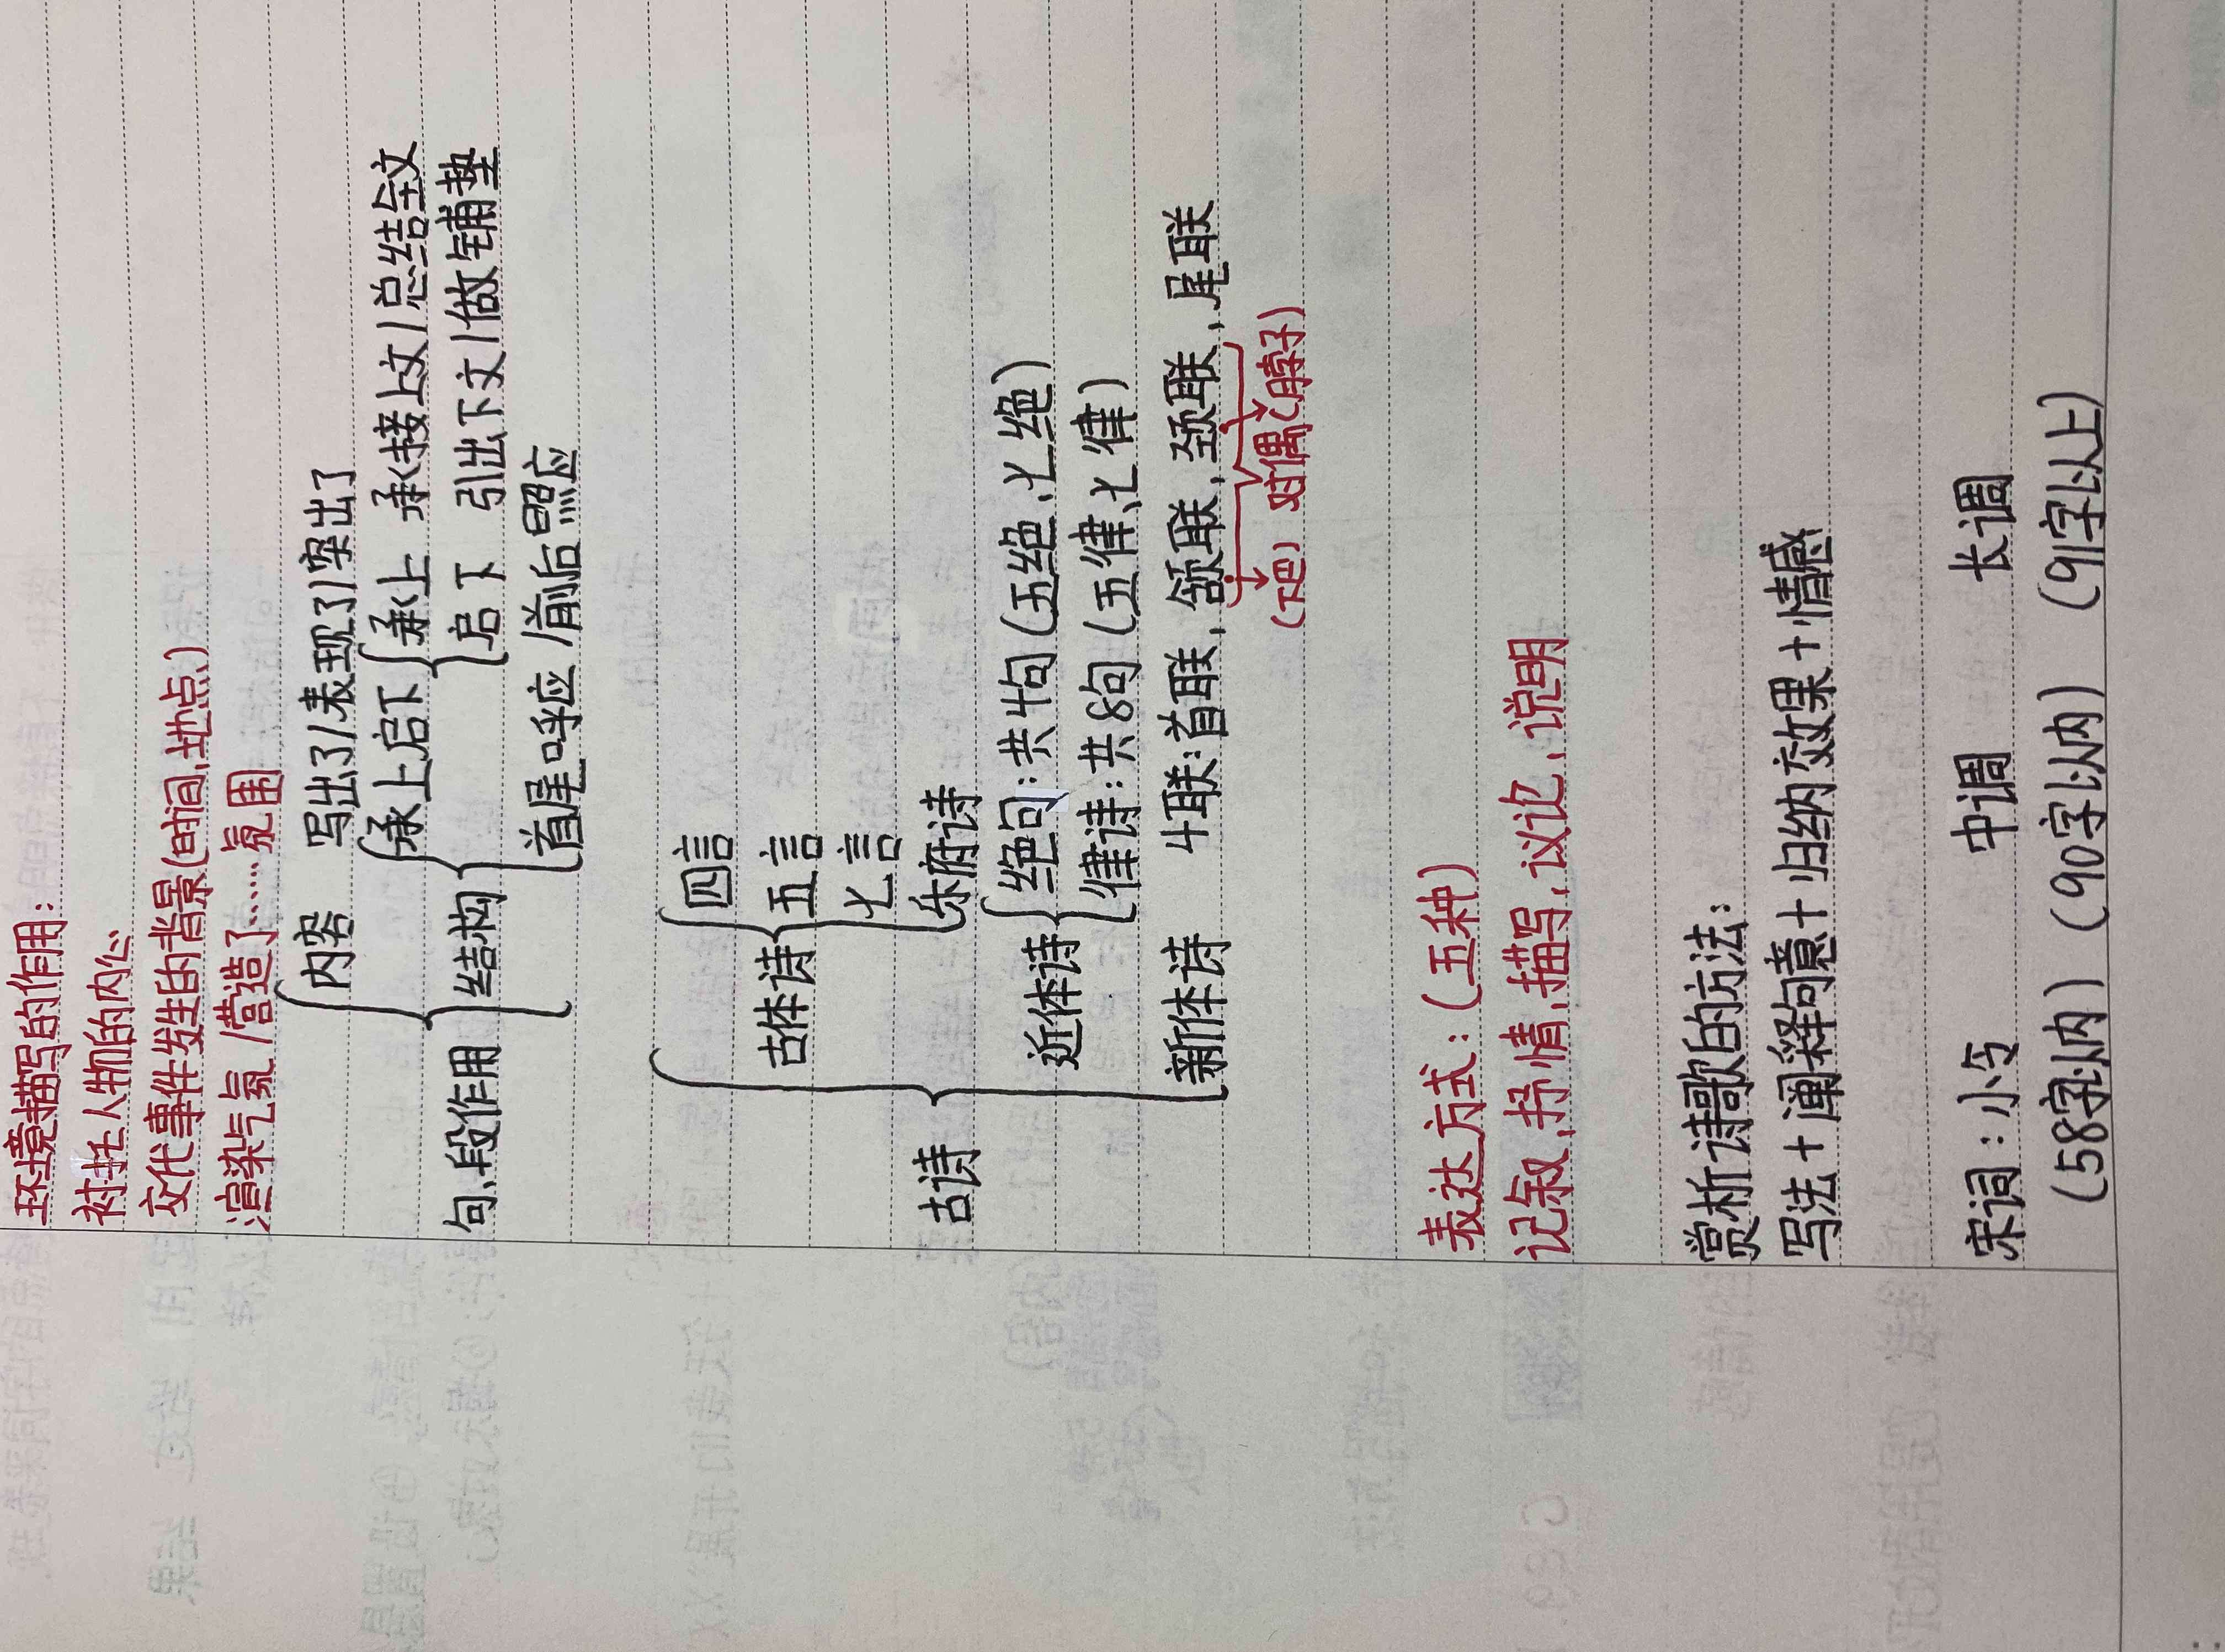 环境描写的作用:
衬托人物的内心
交代事件发生的背景(时间,地点)
渲染气氛/营造了……氛围
内容 写出了/表现了/突出了
承上启下 承上 承接上文/总结全文
句,段作用 结构 启下 引出下文/做铺垫
首尾呼应/前后照应
四言
古体诗 五言
七言
古诗 乐府诗
近体诗 绝句:共4句(五绝、七绝)
律诗:共8句(五律、七律)
新体诗 4联:首联,颔联,颈联,尾联
(下巴) 对偶(脖子)
表达方式:(五种)
记叙,抒情,描写,议论,说明
赏析诗歌的方法:
写法+阐释句意+归纳效果+情感
宋词:小令 中调 长调
(58字以内) (90字以内) (91字以上)